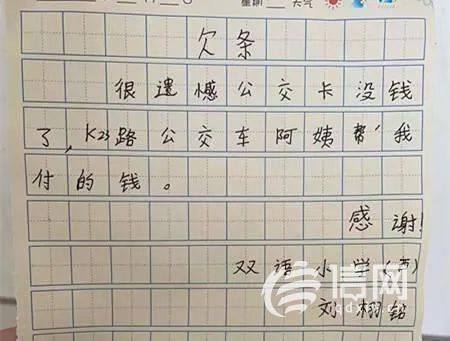 星期 天气
欠条
很遗憾公交卡没钱
了,K23路公交车阿姨帮我
付的钱。
感谢!
双语小学(西)
刘栩铭
信网